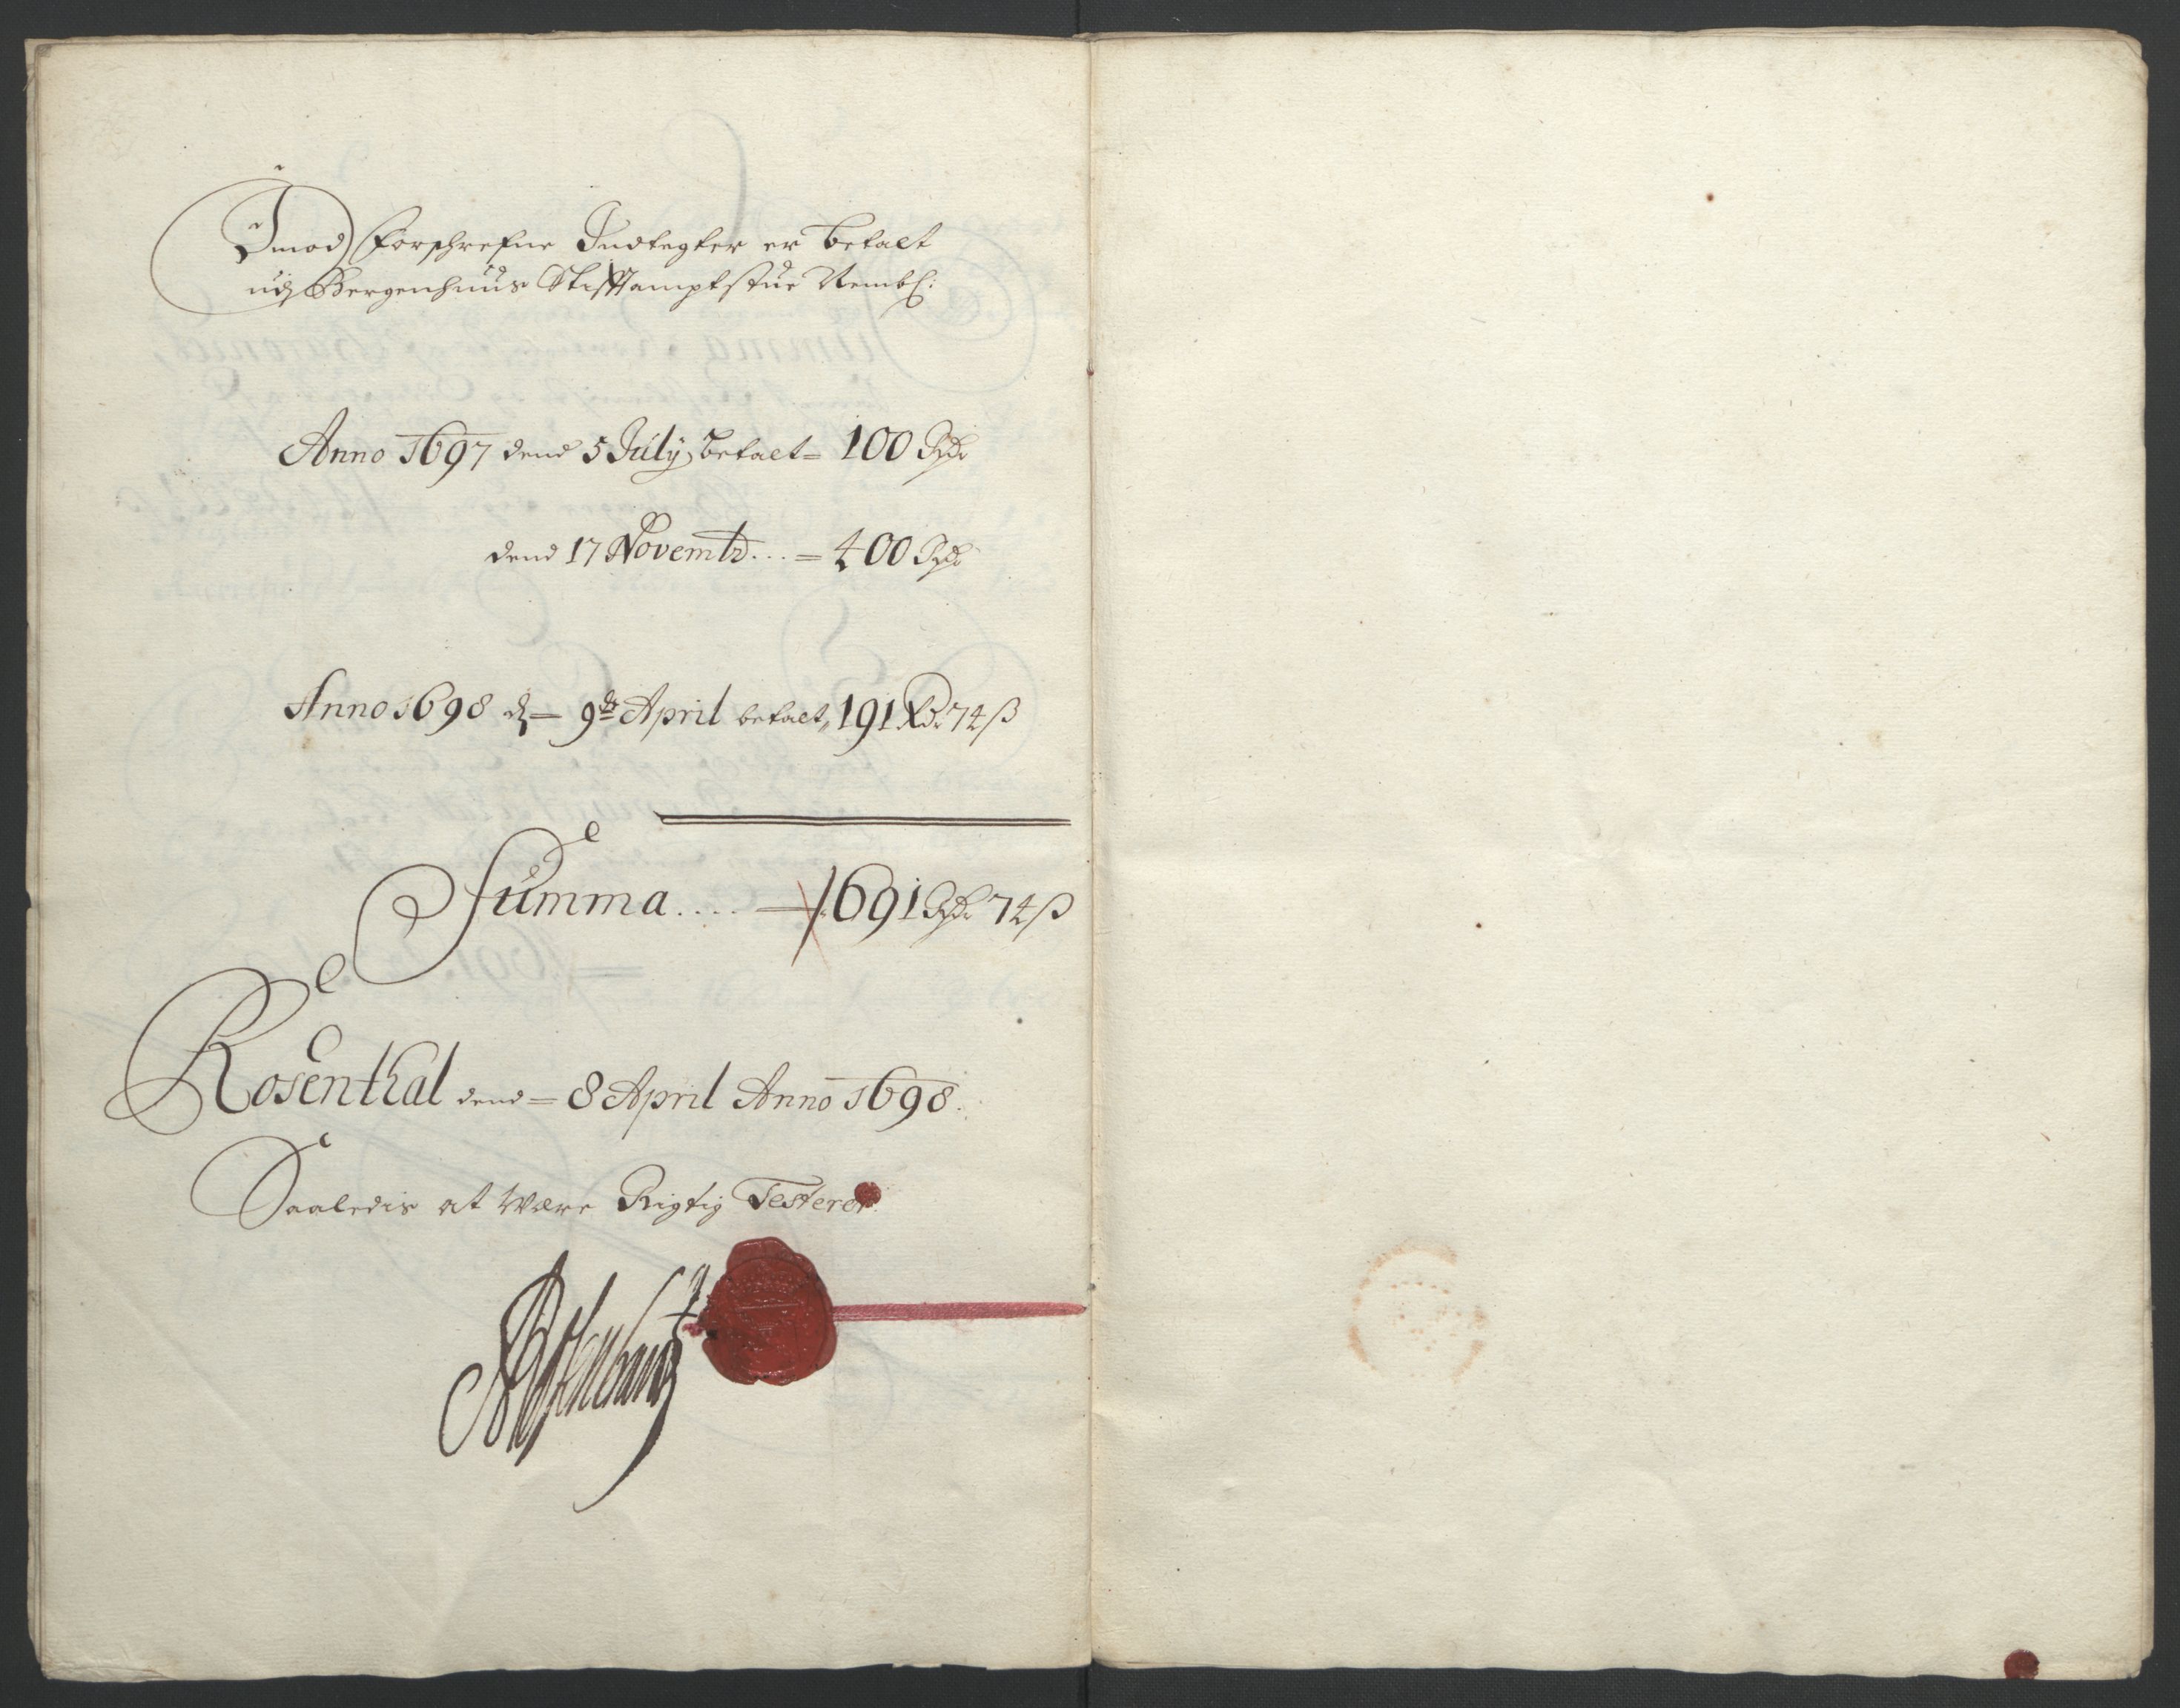 Imod forschrefne Indtegter er betalt
udj Bergenhuus Stifftamptstue Nembl:
Anno 1697 dend 5 July betalt = 100 Rdr
dend 17 Novemb... = 400 Rdr
Anno 1698 d — 9de April betalt, 191 Rdr 74 ß
Summa.... — 691 Rdr 74 ß
Rosenthal dend = 8 April Anno 1698.
Saaledis at were Rigtig Testerer